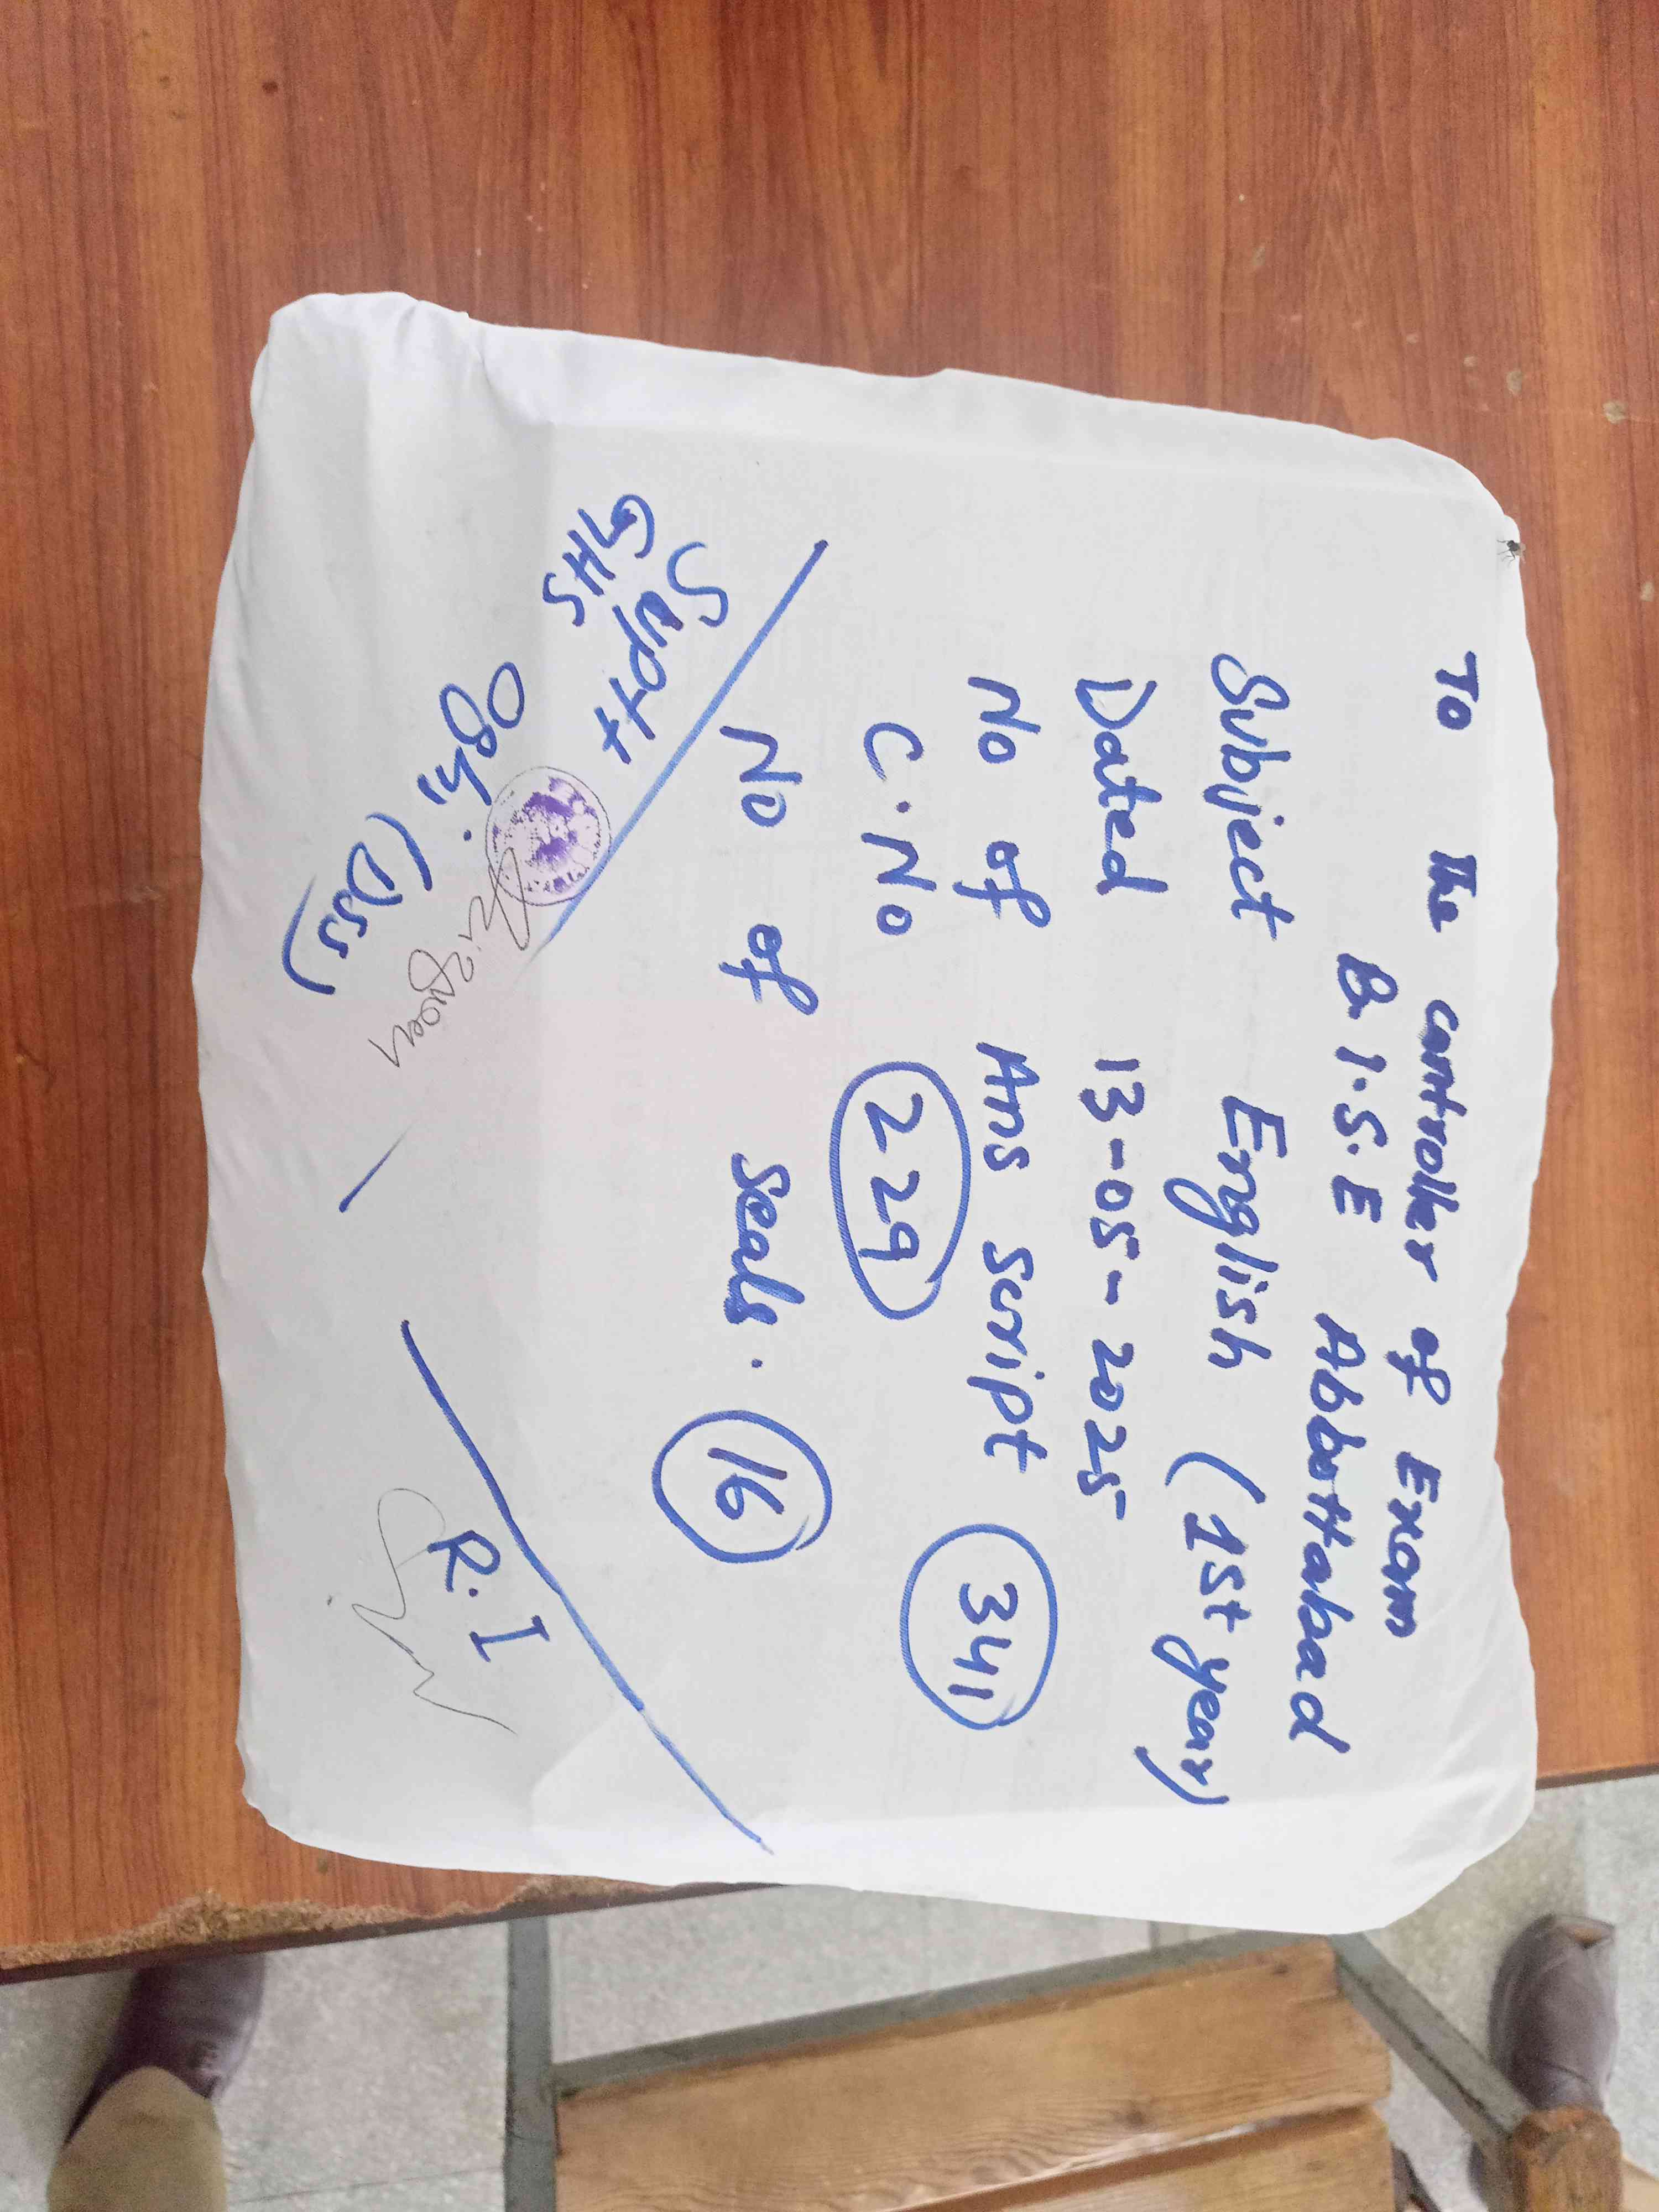 To the controller of Exam
B.I.S.E Abbottabad
Subject English (1st year)
Dated 13-05-2025
No of Ans script 341
C.No 229
No of Seals. 16
Suptt
GHS
Oghi.
R.I